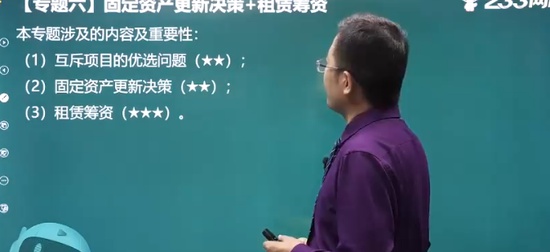 【专题六】固定资产更新决策+租赁筹资
233网校
本专题涉及的内容及重要性：
（1）互斥项目的优选问题（★★）；
（2）固定资产更新决策（★★）；
（3）租赁筹资（★★★）。